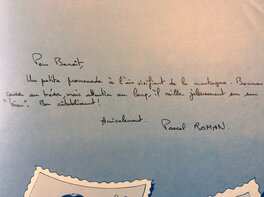 Pour Benoît,
Une petite promenade à l'air vivifiant de la montagne. Bonne
course au trésor, mais attention au loup, il veille jalousement sur son
"bien". Bon rétablissement !
Amicalement,
Pascal ROMAN.